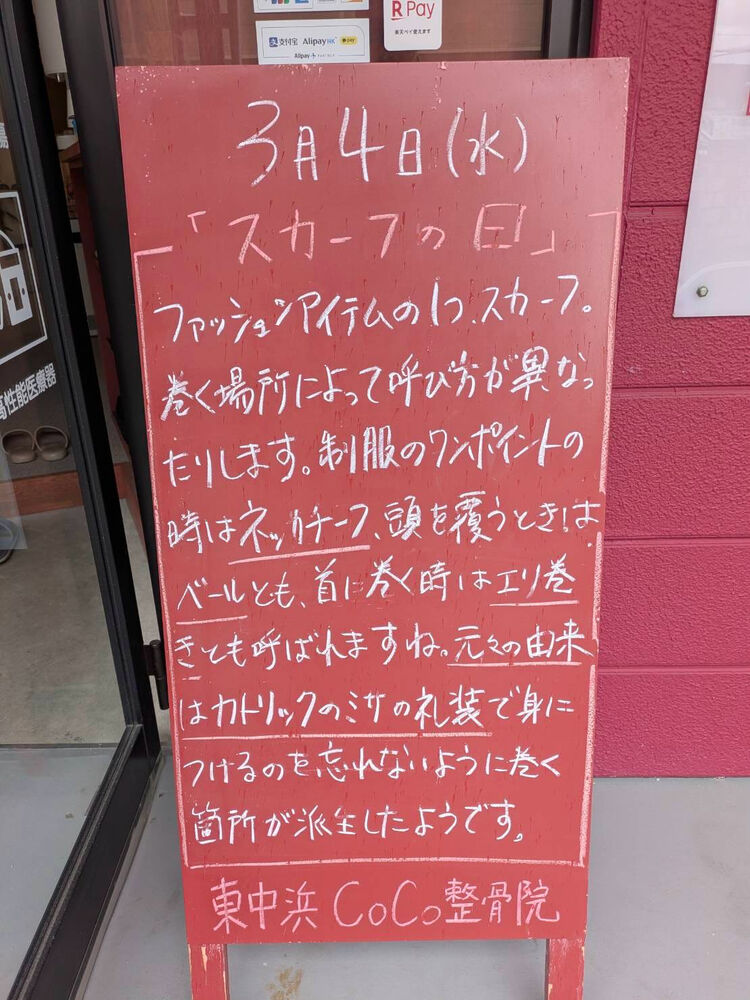 支付宝 Alipay HK pay
Alipay+
R Pay
楽天ペイ使えます
3月4日(水)
「スカーフの日」
ファッションアイテムの1つ、スカーフ。
巻く場所によって呼び方が異なっ
たりします。制服のワンポイントの
時はネッカチーフ、頭を覆うときは
ベールとも、首に巻く時はエリ巻
きとも呼ばれますね。元々の由来
はカトリックのミサの礼装で身に
つけるのを忘れないように巻く
箇所が派生したようです。
東中浜CoCo整骨院
高性能医療器